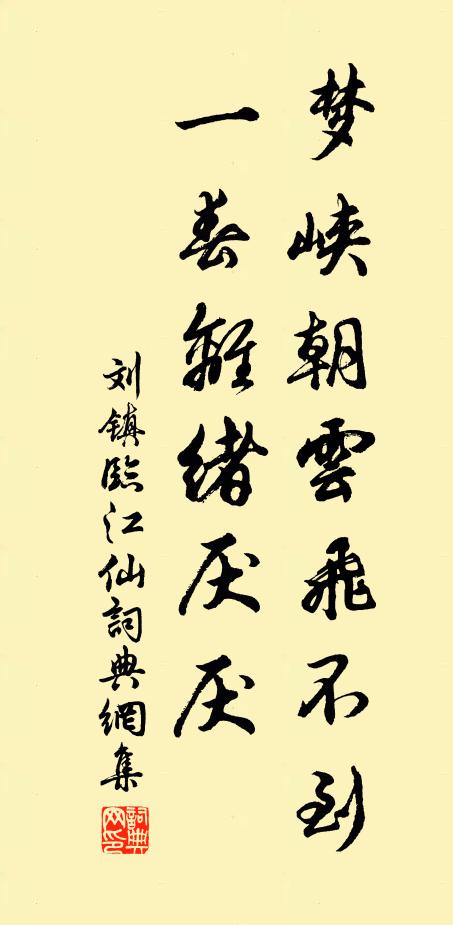 梦峡朝雲飛不到
一春離緒厌厌
刘镇臨江仙詞典網集
詞典网印